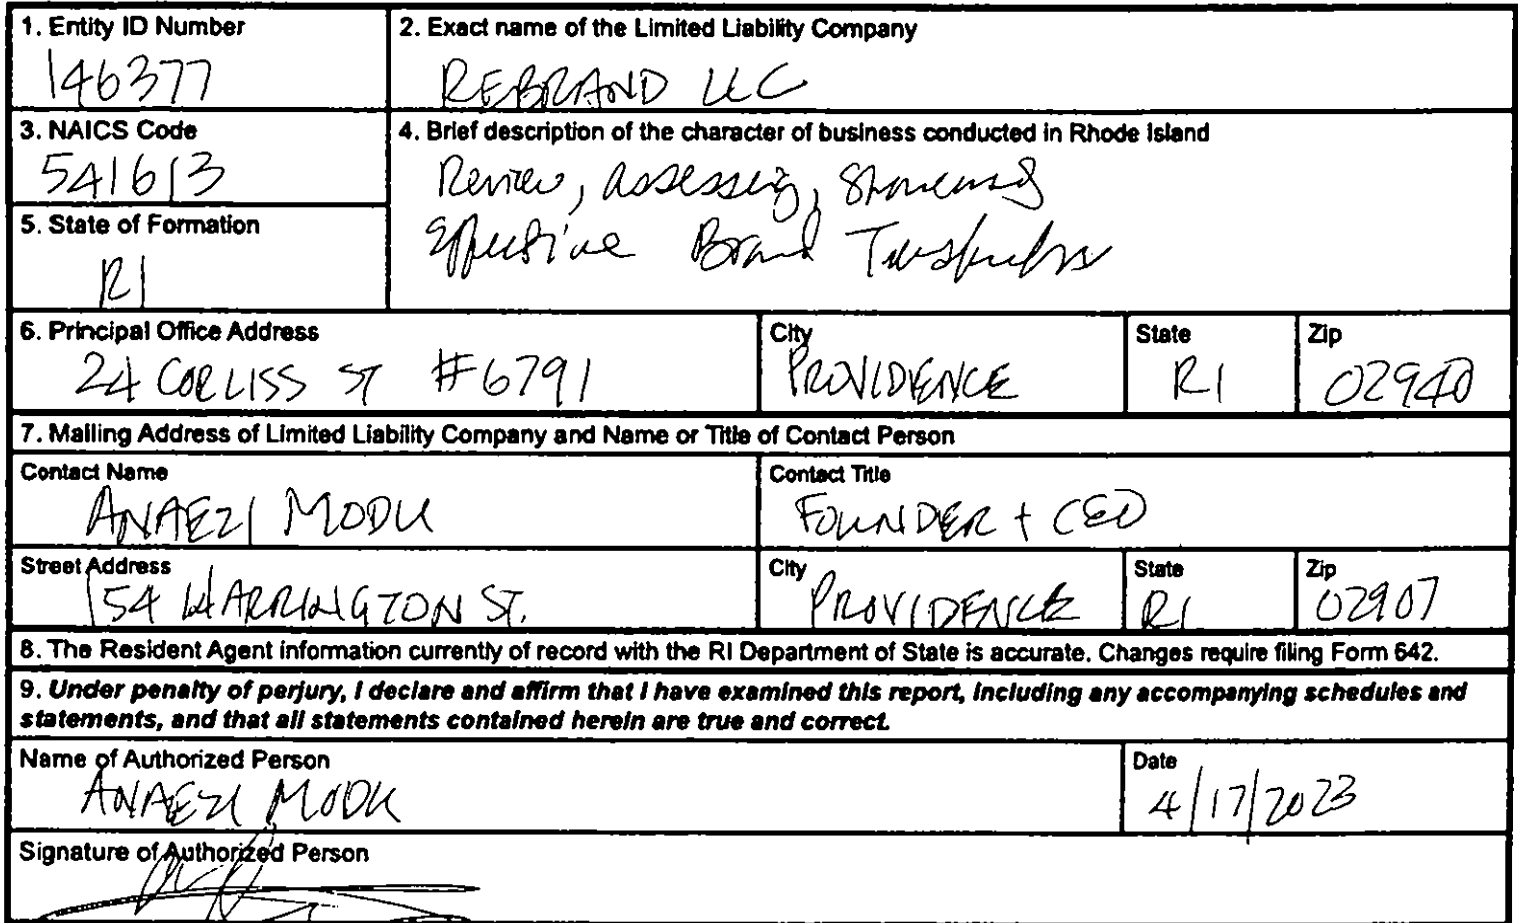 1. Entity ID Number
146377
2. Exact name of the Limited Liability Company
REBRAND LLC
3. NAICS Code
541613
4. Brief description of the character of business conducted in Rhode Island
Review, assessing, showcasing
Effective Brand
5. State of Formation
RI
6. Principal Office Address
24 CORLISS ST #6791
City
PROVIDENCE
State
RI
Zip
02940
7. Mailing Address of Limited Liability Company and Name or Title of Contact Person
Contact Name
ANAEZI MODU
Contact Title
FOUNDER + CEO
Street Address
154 HARRINGTON ST.
City
PROVIDENCE
State
RI
Zip
02907
8. The Resident Agent information currently of record with the RI Department of State is accurate. Changes require filing Form 642.
9. Under penalty of perjury, I declare and affirm that I have examined this report, including any accompanying schedules and
statements, and that all statements contained herein are true and correct.
Name of Authorized Person
ANAEZI MODU
Date
4/17/2023
Signature of Authorized Person